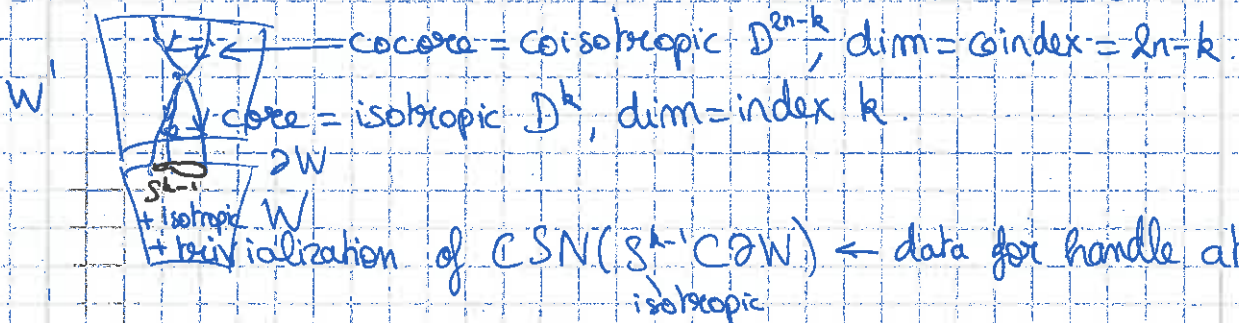 cocore = coisotropic D^{2n-k}, dim = coindex = 2n-k.
W'
core = isotropic D^k, dim = index k.
∂W
S^{k-1}
+ isotropic W
+ trivialization of CSN(S^{k-1} ⊂ ∂W) ← data for handle at
isotropic